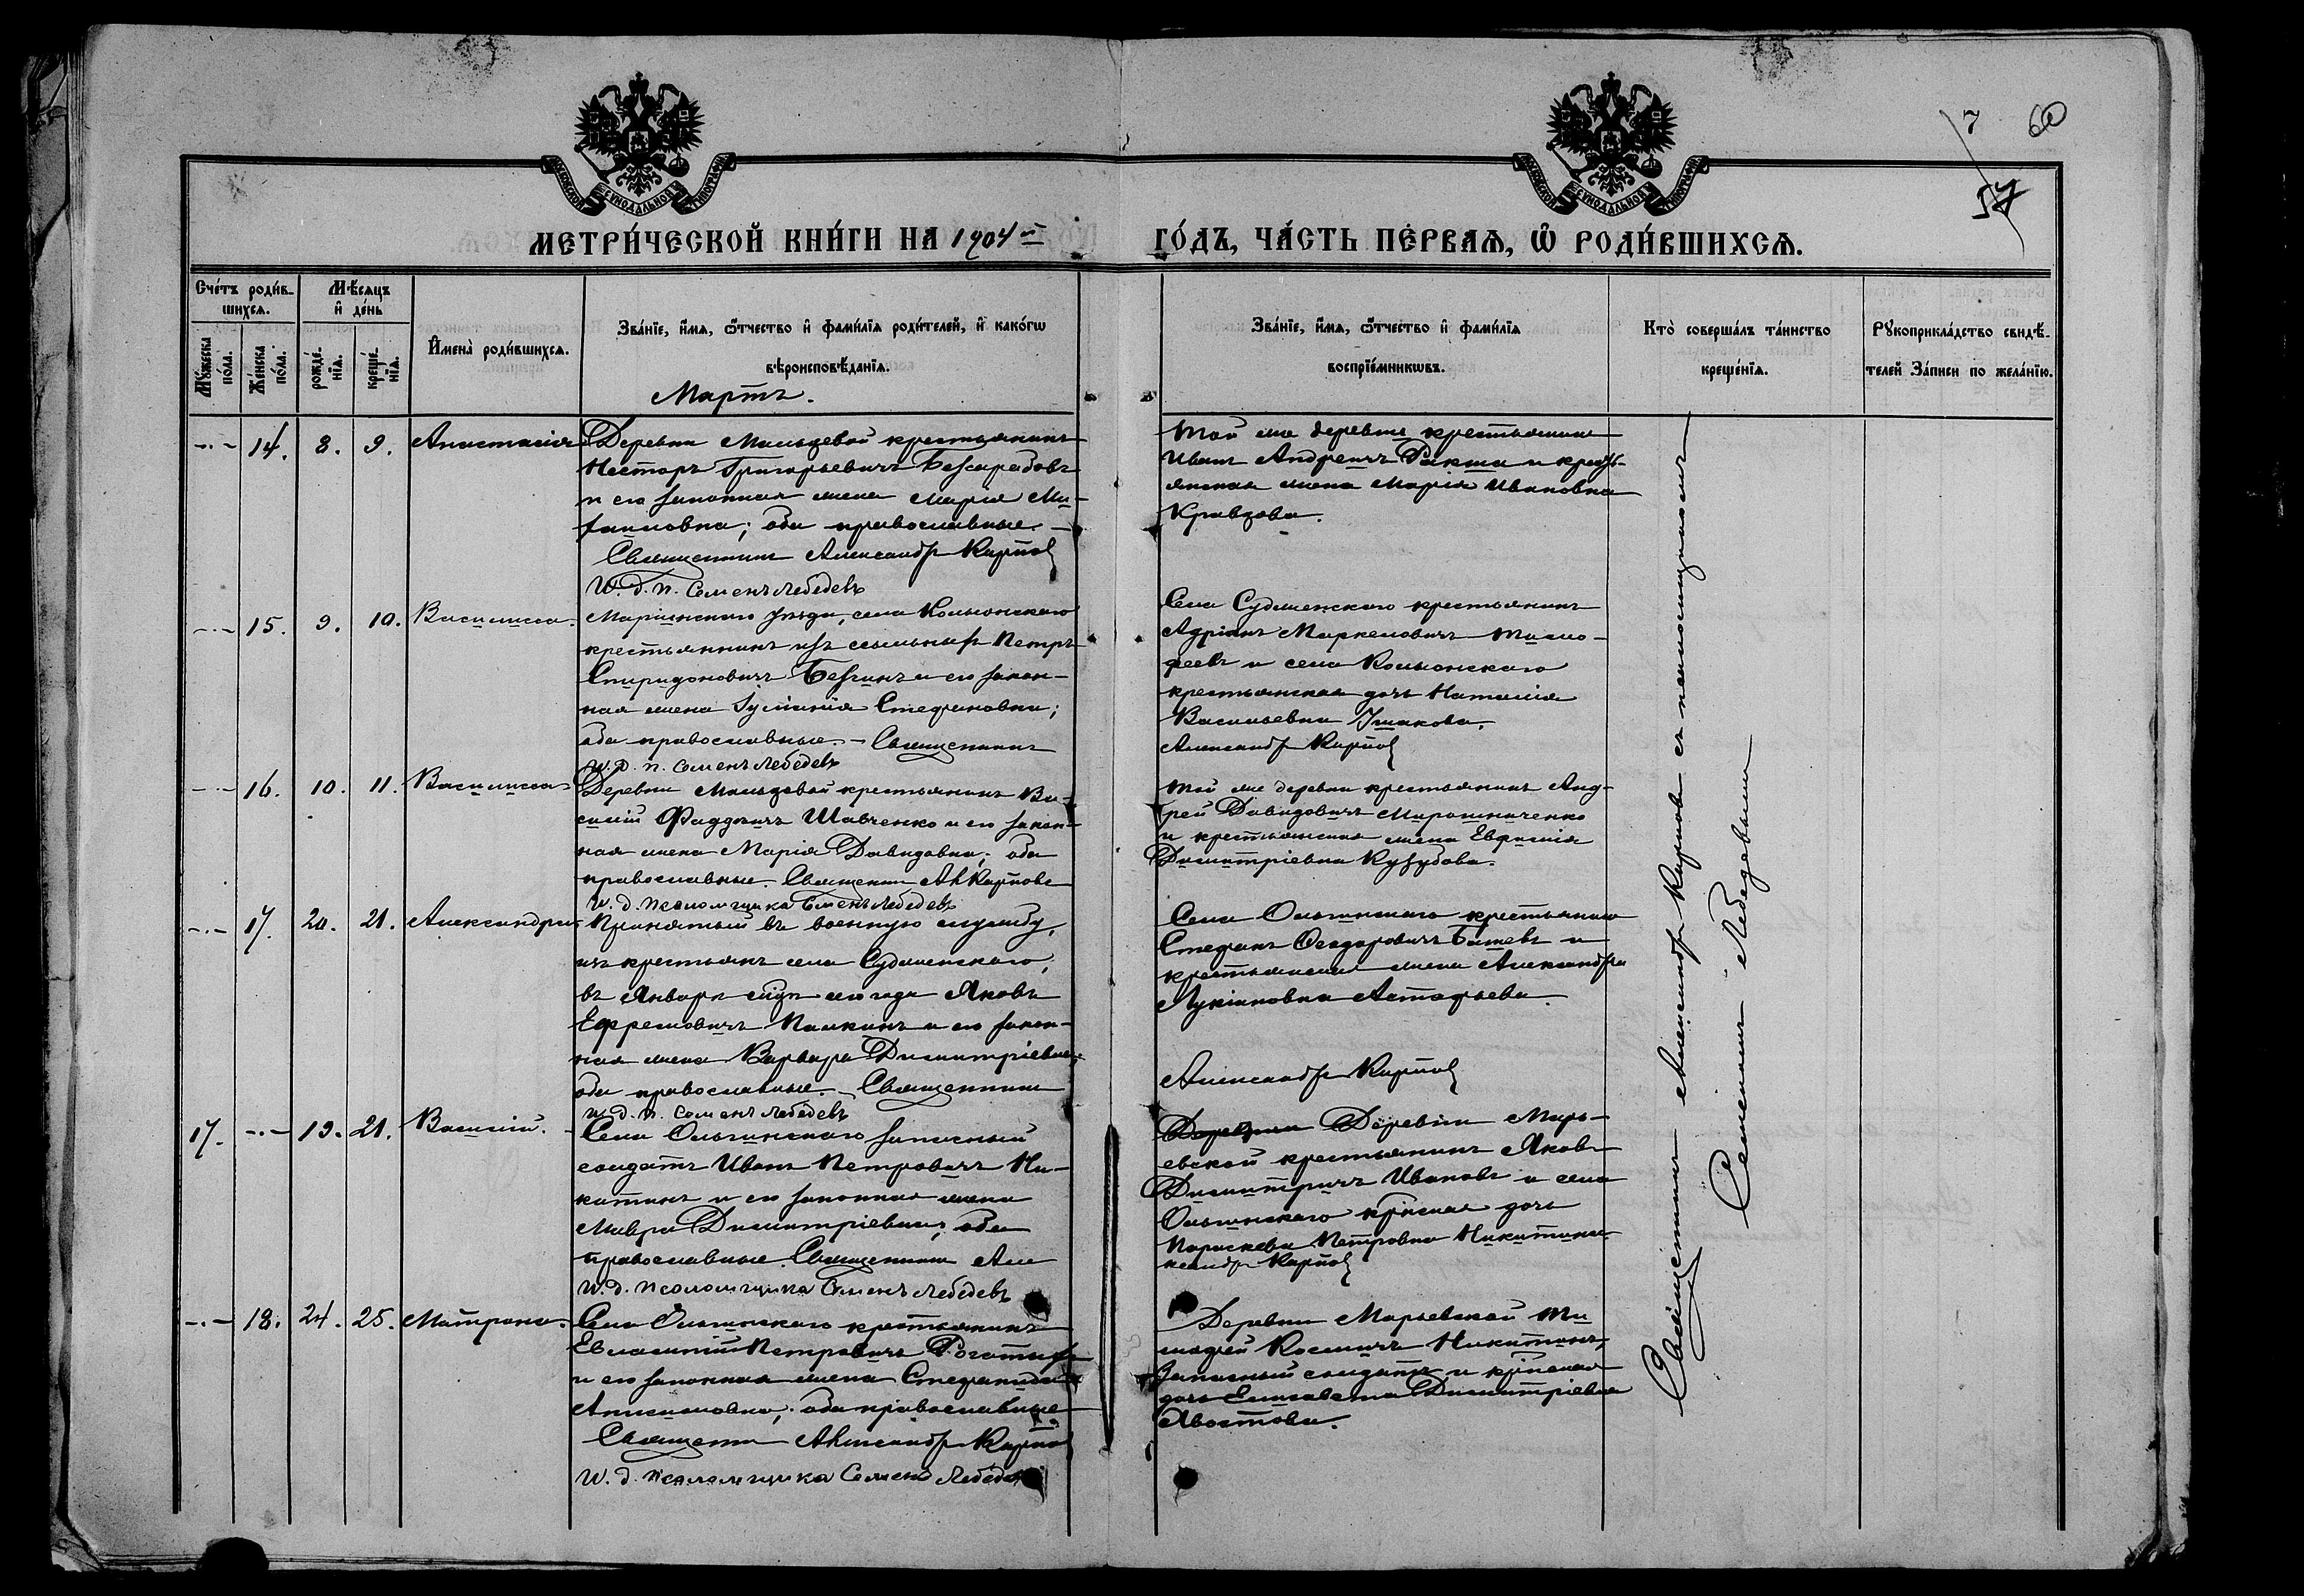 7 60
57
МОСКОВСКОЙ СѴНОДАЛЬНОЙ ТИПОГРАФІИ
МОСКОВСКОЙ СѴНОДАЛЬНОЙ ТИПОГРАФІИ
МЕТРИ́ЧЕСКОЙ КНИ́ГИ НА 1904й ГО́ДЪ, ЧА́СТЬ ПЕ́РВАѦ, Ѡ҆ РОДИ́ВШИХСѦ.
Сче́тъ роди́в-
шихсѧ.
Мѣ́сѧцъ
и҆ де́нь
Мꙋ́жеска
по́ла.
Же́нска
по́ла.
рожде́-
нїѧ.
креще́-
нїѧ.
И҆мена̀ роди́вшихсѧ.
Зва́нїе, и҆́мѧ, ѻ҆́тчество и҆ фами́лїѧ роди́телей, и҆ како́гѡ
вѣроисповѣ́данїѧ.
Мартъ.
Зва́нїе, и҆́мѧ, ѻ҆́тчество и҆ фами́лїѧ
воспрїе́мникѡвъ.
Кто̀ соверша́лъ та́инство
креще́нїѧ.
Рꙋкоприкла́дство свидѣ́-
телей за́писи по жела́нїю.
-·- 14. 8. 9. Анастасія
Деревни Мальцевой крестьянинъ
Несторъ Григорьевичъ Бессарабовъ
и его законная жена Марія Ми-
хаиловна; оба православные. -
Священникъ Александръ Карповъ
И.д.п. Семенъ Лебедевъ
Той же деревни крестьянинъ
Иванъ Андреичъ Ракша и кресть-
янская жена Марія Ивановна
Кравзова.
-·- 15. 9. 10. Василисса.
Маріинскаго уѣзда, села Кольонскаго
крестьянинъ изъ ссыльныхъ Петръ
Спиридоновичъ Безгинъ и его закон-
ная жена Іуліанія Стефановна;
оба православные. - Священникъ
И.д.п. Семенъ Лебедевъ
Села Судженскаго крестьянинъ
Адріанъ Маркеловичъ Тимо-
феевъ и села Кольонскаго
крестьянская дочь Наталія
Васильевна Ушакова.
Александръ Карповъ
-·- 16. 10. 11. Василисса
Деревни Мальцевой крестьянинъ Ва-
силій Фаддеичъ Шавченко и его закон-
ная жена Марія Давидовна; оба
православные. Священникъ Ал Карповъ
И.д. псаломщика Семенъ Лебедевъ
Той же деревни крестьянинъ Анд-
рей Давидовичъ Мирошниченко
и крестьянская жена Евфимія
Димитріевна Кузубова.
-·- 17. 20. 21. Александра
Принятый въ военную службу,
изъ крестьянъ села Судженскаго,
въ Январѣ сего года Яковъ
Ефремовичъ Палкинъ и его закон-
ная жена Варвара Димитріевна;
оба православные. Священникъ
И.д.п. Семенъ Лебедевъ
Села Ольгинскаго крестьянинъ
Стефанъ Ѳеодоровичъ Башевъ и
крестьянская жена Александра
Лукіановна Астафьева.
Александръ Карповъ
17. -·- 19. 21. Василій.
Села Ольгинскаго запасный
солдатъ Иванъ Петровичъ Ни-
китинъ и его законная жена
Мавра Димитріевна, оба
православные. Священникъ Але
И.д. псаломщика Семенъ Лебедевъ
Деревни Деревни Марь-
евской крестьянинъ Яковъ
Димитричъ Ивановъ и села
Ольгинскаго крестьянская дочь
Параскева Петровна Никитина.
ксандръ Карповъ
-·- 18. 24. 25. Матрона.
Села Ольгинскаго крестьянинъ
Евлампій Петровичъ Рогатыхъ
и его законная жена Стефанида
оба православные
Священникъ Александръ Карповъ
И.д. псаломщика Семенъ Лебедевъ
Деревни Марьевской Ти-
мофей Космичъ Никитинъ,
запасный солдатъ и крестьянская
дочь Елисавета Димитріевна
Хвостова.
Священникъ Александръ Карповъ съ псаломщикомъ
Семеномъ Лебедевымъ